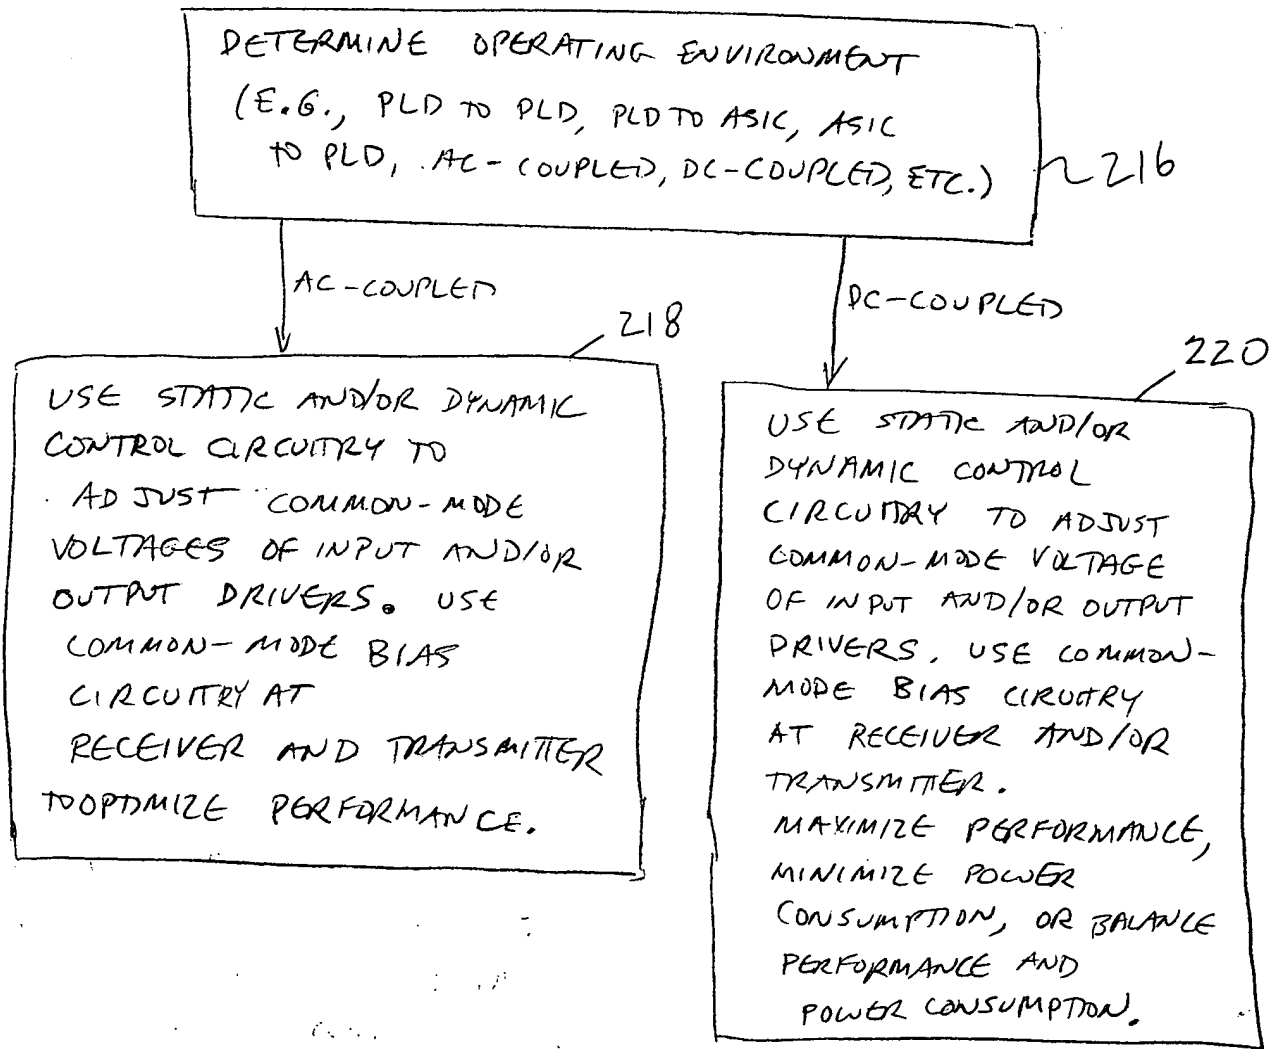 DETERMINE OPERATING ENVIRONMENT
(E.G., PLD TO PLD, PLD TO ASIC, ASIC
TO PLD, AC-COUPLED, DC-COUPLED, ETC.)
216
AC-COUPLED
DC-COUPLED
218
USE STATIC AND/OR DYNAMIC
CONTROL CIRCUITRY TO
ADJUST COMMON-MODE
VOLTAGES OF INPUT AND/OR
OUTPUT DRIVERS. USE
COMMON-MODE BIAS
CIRCUITRY AT
RECEIVER AND TRANSMITTER
TO OPTIMIZE PERFORMANCE.
220
USE STATIC AND/OR
DYNAMIC CONTROL
CIRCUITRY TO ADJUST
COMMON-MODE VOLTAGE
OF INPUT AND/OR OUTPUT
DRIVERS. USE COMMON-
MODE BIAS CIRUITRY
AT RECEIVER AND/OR
TRANSMITTER.
MAXIMIZE PERFORMANCE,
MINIMIZE POWER
CONSUMPTION, OR BALANCE
PERFORMANCE AND
POWER CONSUMPTION.